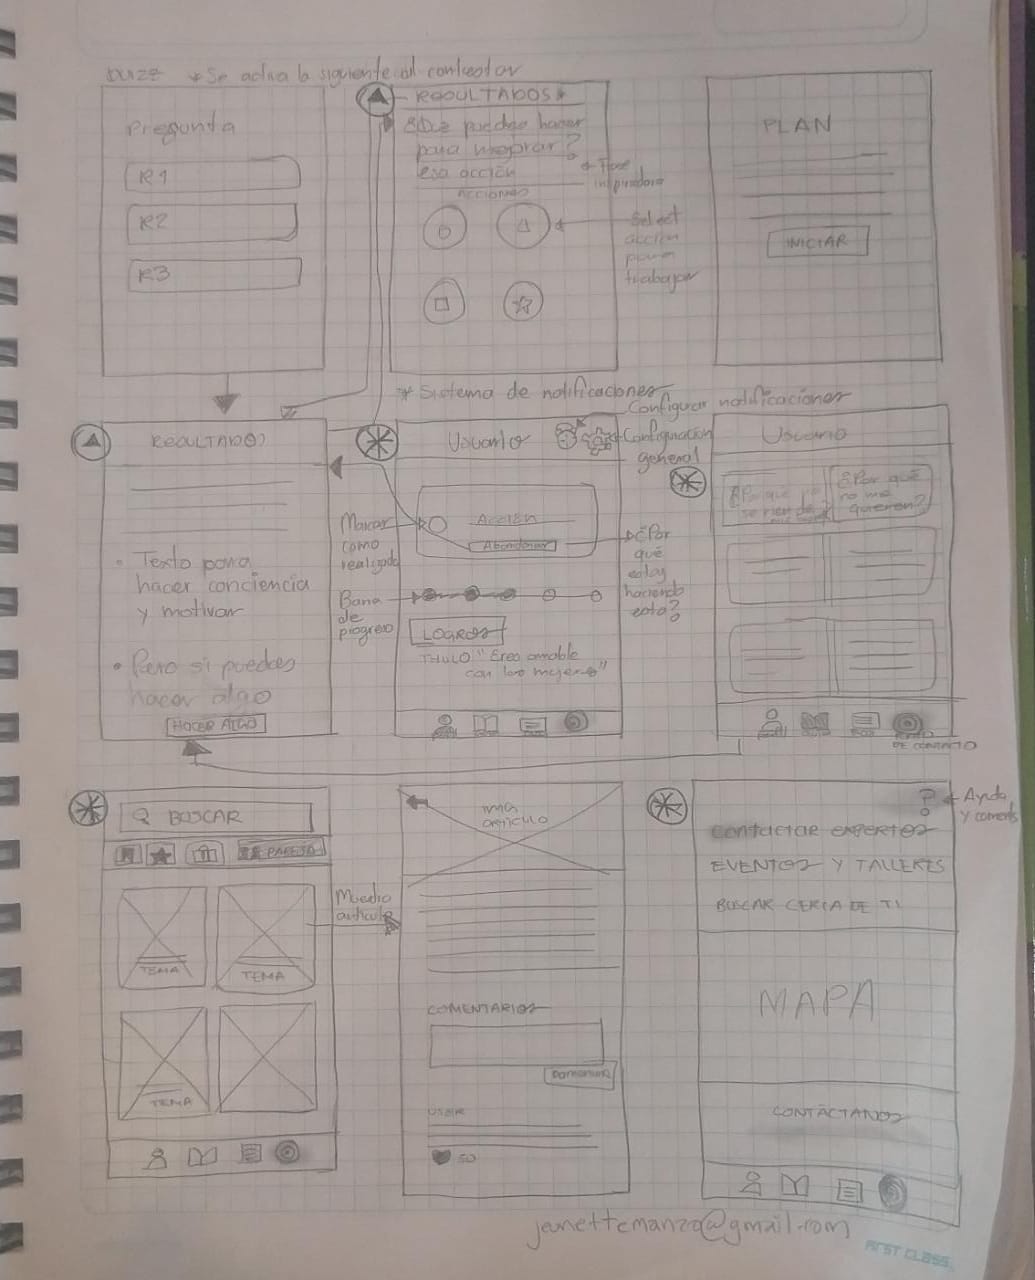 * Se activa la siguiente al contestar
Pregunta
R1
R2
R3
RESULTADOS *
puedes hacer
para mejorar?
esa acción
ACCIONES
← Frase
inspiradora
Select
acción
para
trabajar
PLAN
INICIAR
* Sistema de notificaciones
Configurar notificaciones
RESULTADOS
• Texto para
hacer conciencia
y motivar
• Pero si puedes
hacer algo
HACER ALGO
Usuario
Configuración
general
Marcar
como
realizado
Acción
Abandonar
¿Por
qué
estoy
haciendo
esto?
Barra
de
progreso
LOGROS
TITULO "Eres amable
con las mujeres"
Usuario
¿Por qué
se rien de
¿Por qué
no me
quieren?
DE CONTACTO
BUSCAR
PAREJA
TEMA
TEMA
TEMA
Muestra
articulo
IMG
ARTICULO
COMENTARIOS
Comentar
USER
50
? ← Ayuda
y coments
CONTACTAR EXPERTOS
EVENTOS Y TALLERES
BUSCAR CERCA DE TI
MAPA
CONTÁCTANOS
jeanettemanzo@gmail.com
FIRST CLASS